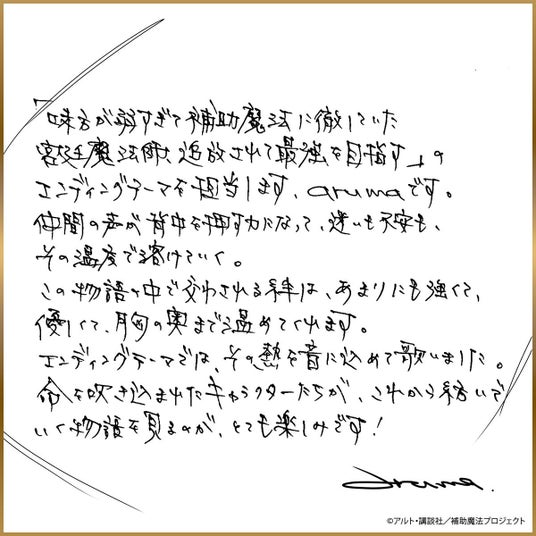 「味方が弱すぎて補助魔法に徹していた
宮廷魔法師、追放されて最強を目指す」の
エンディングテーマを担当します、arumaです。
仲間の声が背中を押す力になって、迷いも不安も、
その温度で溶けていく。
この物語の中で交わされる絆は、あまりにも強くて、
優しくて、胸の奥まで温めてくれます。
エンディングテーマでは、その熱を音に込めて歌いました。
命を吹き込まれたキャラクターたちが、これから紡いで
いく物語を見るのが、とても楽しみです!
aruma.
©アルト・講談社/補助魔法プロジェクト